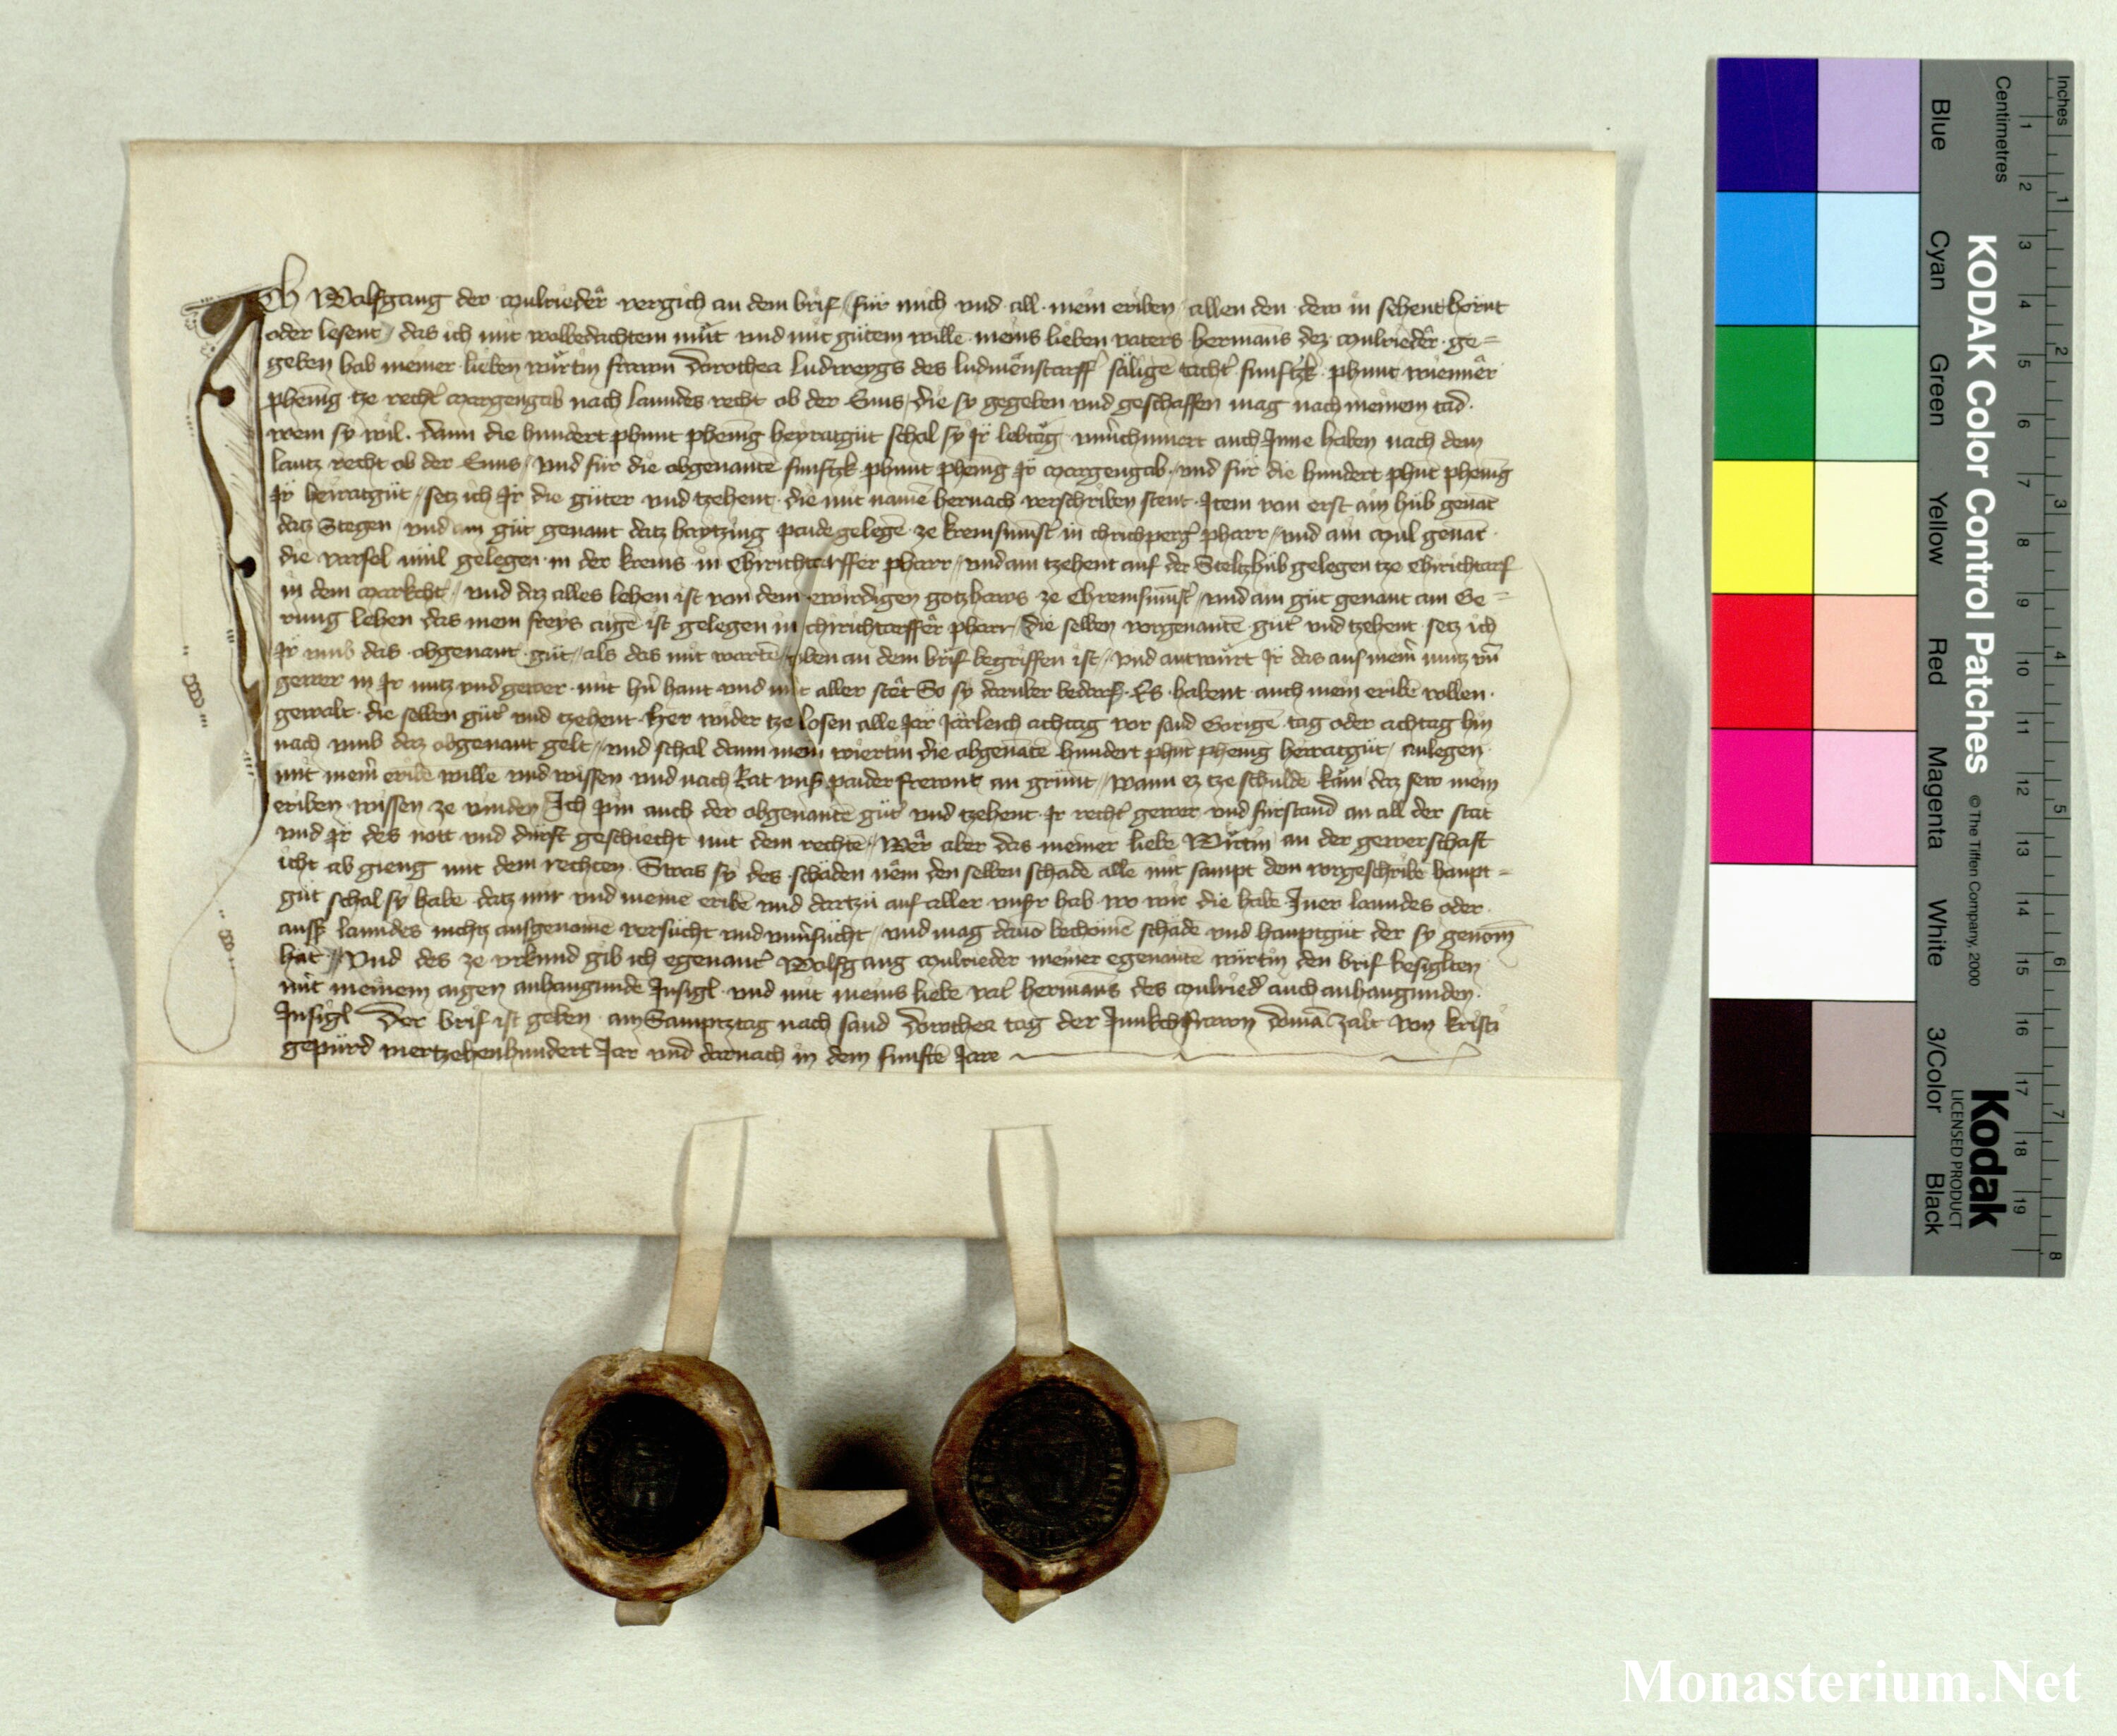 Ich Wolfgang der Mulrieder vergich an dem brif für mich vnd all mein eriben allen den dew in sehent hörnt
oder lesent das ich mit wolbedachtem müt vnd mit gütem wille meins lieben vaters hermans dez Mulrieder ge=
geben hab meiner lieben würtin frawn Dorothea Ludweygs des säligē tocht funftzk phunt wienner
phenīg tze recht Margengab nach lanndes recht ob der Enns die sy gegeben vnd geschaffen mag nach meinem tad
wem sy wil. Dann die hundert phunt phenīg heyratgüt schal sy Ir lebtäg auch Inne haben nach dem
lantz recht ob der Enns vnd für die obgenantē funftzk phunt phenīg Ir Margengab vnd für die hundert phūt phenīg
Ir heiratgüt setz ich Ir die güter vnd tzehent die mit namē hernach verschriben stent Item von erst ain hüb genāt
datz Stegen vnd ain güt genant datz paide gelegē ze kremsmūst in chirchperg pharr vnd ain Mul genāt
die mül gelegen in der krems in Chirichtarffer pharr vnd ain tzehent auf der Steltzhüb gelegen tze Chirichtarf
in dem Markcht vnd daz alles lehen ist von dem erwirdigen gotzhaws ze Chremsmūst vnd ain güt genant am Ge=
rung lehen das mein freys aigē ist gelegen in chirichtarffer pharr die selben vorgenantē güt vnd tzehent setz ich
Ir vmb das obgenant güt als das mit wartē oben an dem brif begriffen ist vnd antwürt Ir das aus meim nutz vn̄
gewer in Ir nutz vnd gewer mit hant vnd mit aller stët So sy daruber bedarf. Es habent auch mein eribē vollen
gewalt die selben güt vnd tzehent her wider tze losen alle Jar Järleich achtag vor sand Görigē tag oder achtag hin
nach vmb daz obgenant gelt vnd schal dann mein wiertin die obgenātē hundert phūt phenīg heiratgüt anlegen
mit meiner eribē willē vnd wissen vnd nach Rat vnser paider frewnt an grünt wann ez tze schuldē käm daz sew mein
eriben wissen ze vinden Ich pin auch der obgenantē güt vnd tzehent Ir recht gewer vnd fürstand an all der stat
vnd Ir des nott vnd dürft geschiecht mit dem rechtē Wër aber das meiner liebē Wirtin an der gewerschaft
icht ab gieng mit dem rechten. Swas sy des schäden nëm den selben schadē allē mit sampt dem vorgeschribē haupt=
güt schal sy habē datz mir vnd meinē eribē vnd dartzü auf aller vnser hab wo wir die habē Inner lanndes oder
ausser lanndes nichtz ausgenomē versücht vnd vnuersücht vnd mag dauō bechömē schädē vnd hauptgüt der sy genōm
hat Vnd des ze vrkund gib ich egenant Wolfgang Mulrieder meiner egenantē würtin den brif besiglten
mit meinem aigen anhangundē Insigl vnd mit meins liebē vat hermans des Mulried auch anhangunden
Insigl Der brif ist geben am Samptztag nach sand Dorothea tag der Junkchfrawn domā zalt von kristi
gepürd viertzehenhundert Jar vnd darnach in dem funftē Jare
KODAK Color Control Patches
© The Tiffen Company, 2000
Kodak
LICENSED PRODUCT
Inches
1 2 3 4 5 6 7 8
Centimetres
1 2 3 4 5 6 7 8 9 10 11 12 13 14 15 16 17 18 19
Blue
Cyan
Green
Yellow
Red
Magenta
White
3/Color
Black
Monasterium.Net